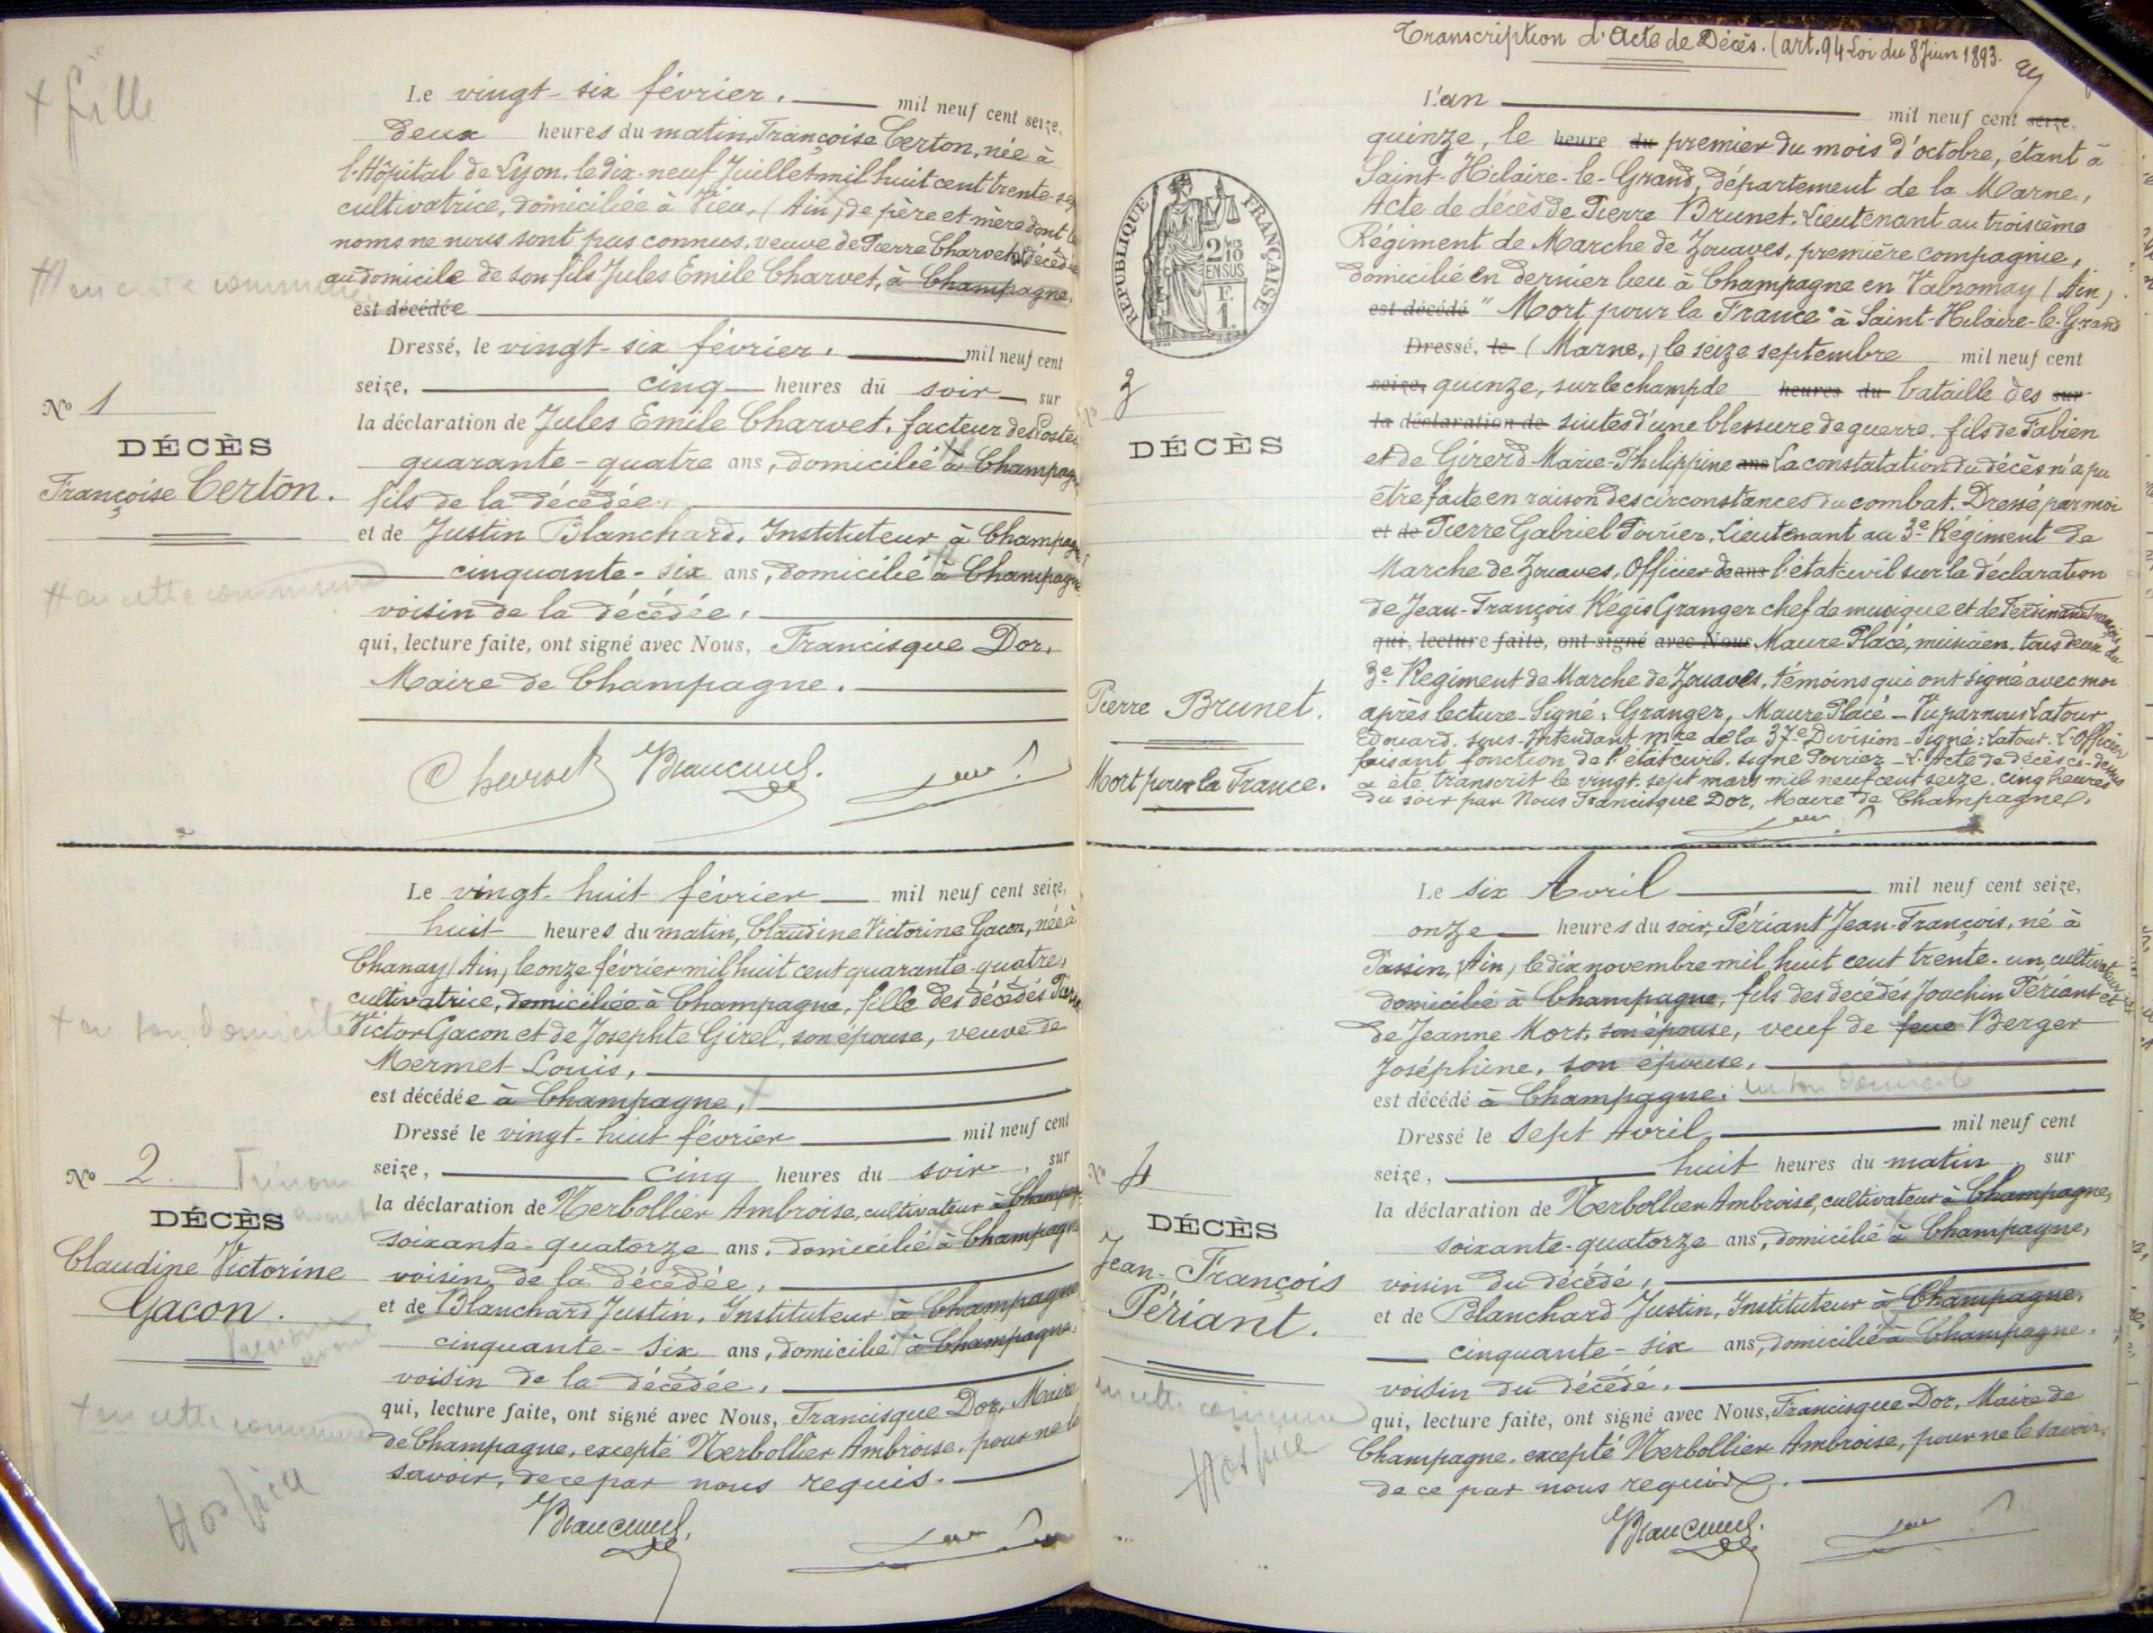 + fille
Le vingt-six février, mil neuf cent seize,
deux heures du matin, Françoise Certon, née à
l'Hôpital de Lyon, le dix-neuf Juillet mil huit cent trente-sep
cultivatrice, domiciliée à Vieu, (Ain) de père et mère dont les
noms ne nous sont pas connus, veuve de Pierre Charvet, décédée
au domicile de son fils Jules Emile Charvet, à Champagne,
est décédée
Dressé, le vingt-six février, mil neuf cent
seize, cinq heures du soir, sur
la déclaration de Jules Emile Charvet, facteur des Postes
quarante-quatre ans, domicilié à Champagne
fils de la décédée,
et de Justin Blanchard, Instituteur à Champagne
cinquante-six ans, domicilié à Champagne
voisin de la décédée,
qui, lecture faite, ont signé avec Nous, Francisque Dor,
Maire de Champagne.
en cette commune
No 1
DÉCÈS
Françoise Certon.
en cette commune
Charvet Blanchard
Le vingt-huit février mil neuf cent seize,
huit heures du matin, Claudine Victorine Gacon, née à
Chanay (Ain) le onze février mil huit cent quarante-quatre,
cultivatrice, domiciliée à Champagne, fille des décédés Pierre
Victor Gacon et de Josephte Girel, son épouse, veuve de
Mermet Louis,
est décédée à Champagne,
Dressé le vingt-huit février mil neuf cent
seize, cinq heures du soir, sur
la déclaration de Nerbollier Ambroise, cultivateur à Champagne
soixante-quatorze ans, domicilié à Champagne
voisin de la décédée,
et de Blanchard Justin, Instituteur à Champagne
cinquante-six ans, domicilié à Champagne,
voisin de la décédée,
qui, lecture faite, ont signé avec Nous, Francisque Dor, Maire
de Champagne, excepté Nerbollier Ambroise, pour ne le
savoir, de ce par nous requis.
+ en son domicile
No 2
Prénom
avant
DÉCÈS
Claudine Victorine
Gacon.
+ en cette commune
Hospice
Blanchard
Transcription d'Acte de Décès. (art. 94 Loi du 8 Juin 1893.
L'an mil neuf cent seize,
quinze, le heure du premier du mois d'octobre, étant à
Saint-Hilaire-le-Grand, département de la Marne,
Acte de décès de Pierre Brunet, Lieutenant au troisième
Régiment de Marche de Zouaves, première compagnie,
domicilié en dernier lieu à Champagne en Valromay (Ain)
est décédé "Mort pour la France" à Saint-Hilaire-le-Grand
Dressé, le (Marne,) le seize septembre mil neuf cent
seize, quinze, sur le champ de heures du bataille des sur
la déclaration de suites d'une blessure de guerre, fils de Fabien
et de Girerd Marie-Philippine ans La constatation du décès n'a pu
être faite en raison des circonstances du combat. Dressé par moi
et de Pierre Gabriel Poirier, Lieutenant au 3e Régiment de
Marche de Zouaves, Officier de ans l'état civil sur la déclaration
de Jean-François Régis Granger chef de musique et de Ferdinand François
qui, lecture faite, ont signé avec Nous Maure Placé, musicien, tous deux du
3e Régiment de Marche de Zouaves, témoins qui ont signé avec moi
après lecture - Signé: Granger, Maure Placé - Vu par nous Latour
Edouard, sous-Intendant mre de la 37e Division - Signé: Latour. L'Officier
faisant fonction de l'état civil, signé Poirier - L'Acte de décès ci-dessus
a été transcrit le vingt-sept mars mil neuf cent seize, cinq heures
du soir par Nous Francisque Dor, Maire de Champagne.
RÉPUBLIQUE FRANÇAISE
2/10
EN SUS
F.
1.
3
DÉCÈS
Pierre Brunet.
Mort pour la France.
Le six Avril mil neuf cent seize,
onze heures du soir, Périant Jean-François, né à
Passin, (Ain) le dix novembre mil huit cent trente-un, cultivateur
domicilié à Champagne, fils des décédés Joachin Périant et
de Jeanne Mort, son épouse, veuf de feue Berger
Joséphine, son épouse,
est décédé à Champagne. en son domicile
Dressé le sept Avril, mil neuf cent
seize, huit heures du matin, sur
la déclaration de Nerbollier Ambroise, cultivateur à Champagne,
soixante-quatorze ans, domicilié à Champagne,
voisin du décédé,
et de Blanchard Justin, Instituteur à Champagne,
cinquante-six ans, domicilié à Champagne,
voisin du décédé,
qui, lecture faite, ont signé avec Nous, Francisque Dor, Maire de
Champagne, excepté Nerbollier Ambroise, pour ne le savoir,
de ce par nous requis.
No 4
DÉCÈS
Jean-François
Périant.
en cette commune
Hospice
Blanchard